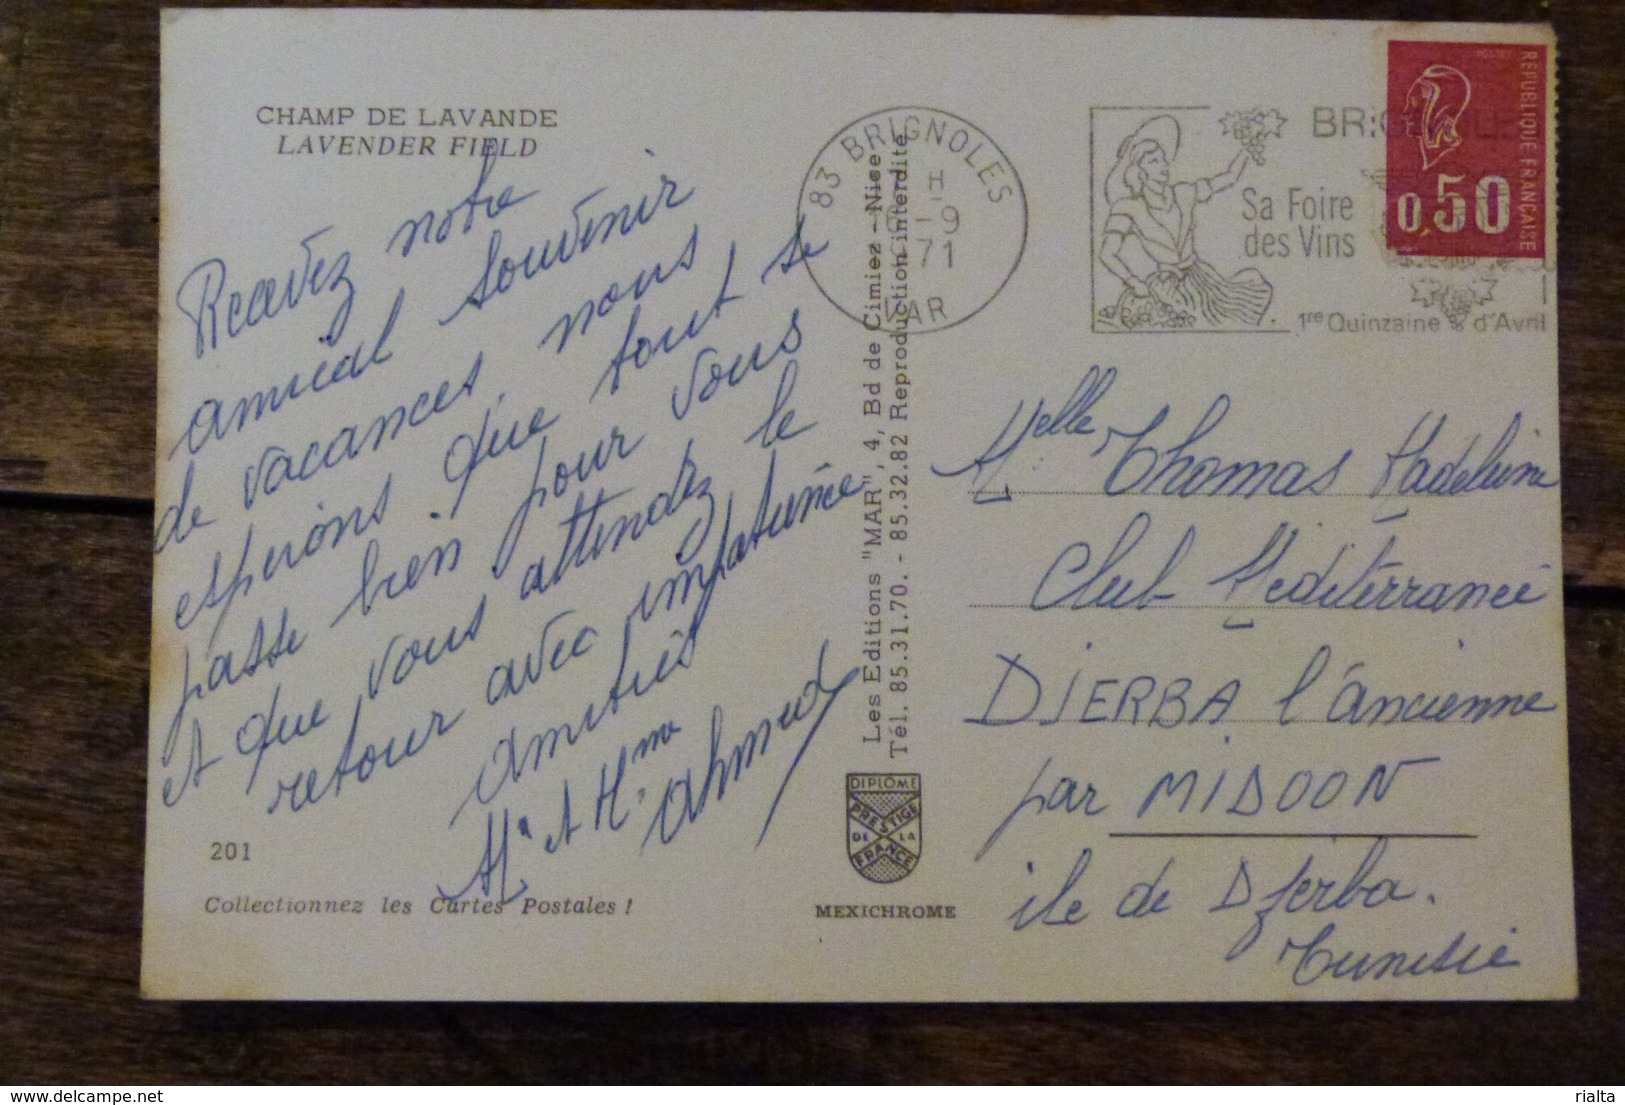 CHAMP DE LAVANDE
LAVENDER FIELD
Recevez notre
amical souvenir
de vacances, nous
espérons que tout se
passe bien pour vous
et que vous attendez le
retour avec impatience
amitiés
Mr et Mme
Ahmed
201
Collectionnez les Cartes Postales !
Les Editions "MAR", 4, Bd de Cimiez - Nice
Tél. 85.31.70. - 85.32.82 Reproduction interdite
DIPLOME
PRESTIGE
DE LA
FRANCE
MEXICHROME
83 BRIGNOLES
H
-9
71
VAR
Sa Foire
des Vins
1re Quinzaine d'Avril
POSTES
RÉPUBLIQUE FRANÇAISE
0,50
Melle Thomas Madeleine
Club Mediterranée
DJERBA l'ancienne
par MIDOON
ile de Djerba.
Tunisie
rialta